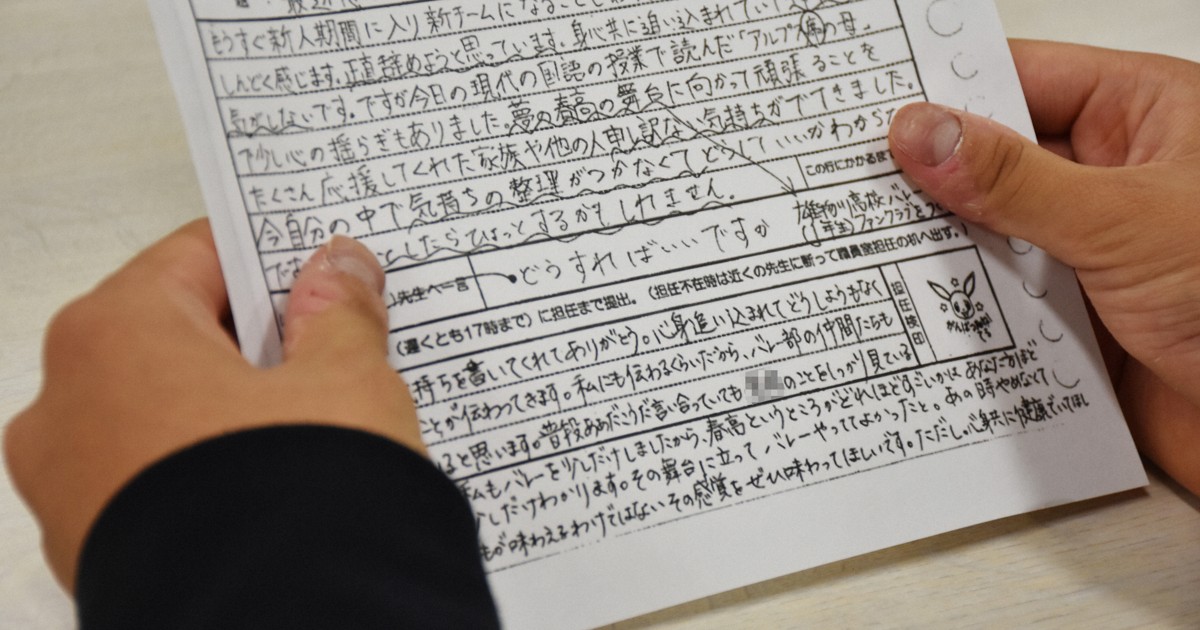 もうすぐ新人期間に入り新チームになること
しんどく感じます。正直辞めようと思っています。身心共に追い込まれてい
気がしないです。ですが今日の現代の国語の授業で読んだ「アルプス席の母」
で少し心の揺らぎもありました。夢の春高の舞台に向かって頑張ることを
たくさん応援してくれた家族や他の人申し訳ない気持ちがでてきました。
今自分の中で気持ちの整理がつかなくてどうしていいがわからな
したらひょっとするかもしれません。
この行にかかるま
先生へ一言
どうすればいいですか
雄物川高校バレー
ファンクラブ
(遅くとも17時まで)に担任まで提出。(担任不在時は近くの先生に断って職員室担任の机へ出す。)
担任検印
がんばったで
持ちを書いてくれてありがとう。心身追い込まれてどうしようもなく
とが伝わってきます。私にも伝わるくらいだから、バレー部の仲間たちも
ると思います。普段ああだこうだ言い合っていても のことをしっかり見ている
私もバレーを少しだけしましたから、春高というところがどれほどすごいかは、あなた方ほど
少しだけわかります。その舞台に立って バレーやっててよかったと。あの時やめなくて
もが味わえるわけではないその感覚をぜひ味わってほしいです。ただし。心身共に健康でいてほし